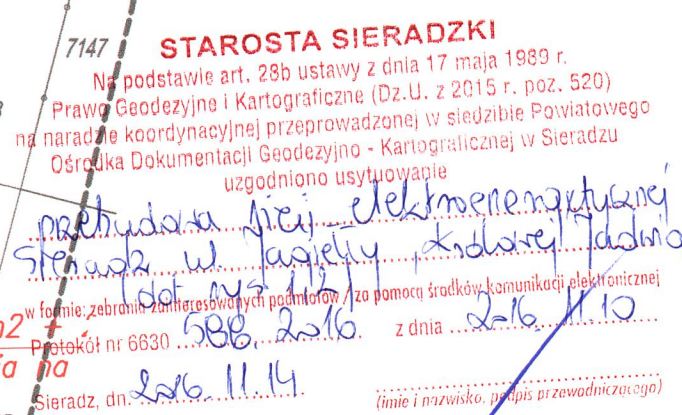 7147
STAROSTA SIERADZKI
Na podstawie art. 28b ustawy z dnia 17 maja 1989 r.
Prawo Geodezyjne i Kartograficzne (Dz.U. z 2015 r. poz. 520)
na naradzie koordynacyjnej przeprowadzonej w siedzibie Powiatowego
Ośrodka Dokumentacji Geodezyjno - Kartograficznej w Sieradzu
uzgodniono usytuowanie
przebudowa sieci elektroenergetycznej
Sieradz ul. Jagiełły, Królowej Jadwi
(dot rys 1,2)
w formie: zebrania zainteresowanych podmiotów / za pomocą środków komunikacji elektronicznej
Protokół nr 6630 588. 2016. z dnia 2016.11.10
Sieradz, dn. 2016.11.14
(imię i nazwisko, podpis przewodniczącego)